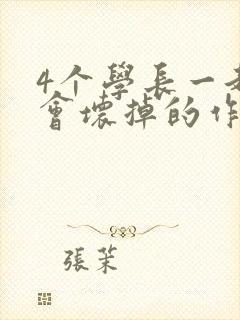 4个學長一
會壞掉的作
張茉